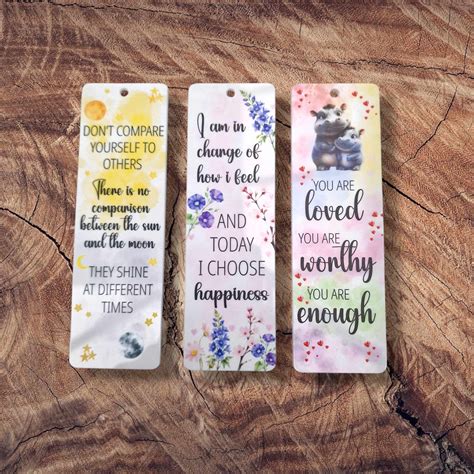 DON'T COMPARE
YOURSELF TO
OTHERS
There is no
comparison
between the sun
and the moon
THEY SHINE
AT DIFFERENT
TIMES
I am in
charge of
how i feel
AND
TODAY
I CHOOSE
happiness
YOU ARE
loved
YOU ARE
worthy
YOU ARE
enough